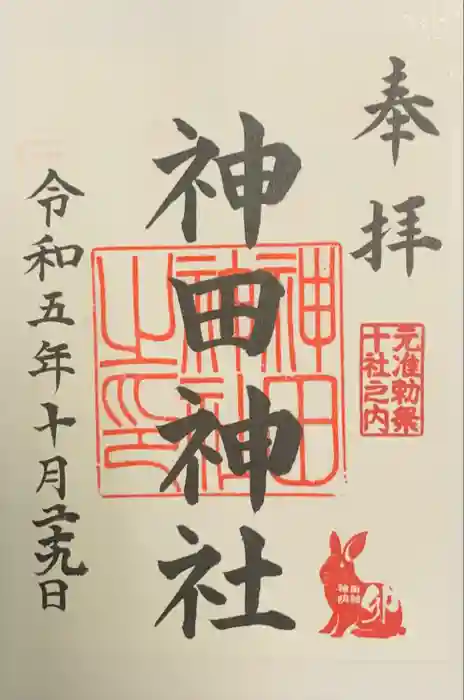 奉拝
元准勅祭
十社之内
卯
神田神社
神田神社之印
令和五年十月二十九日